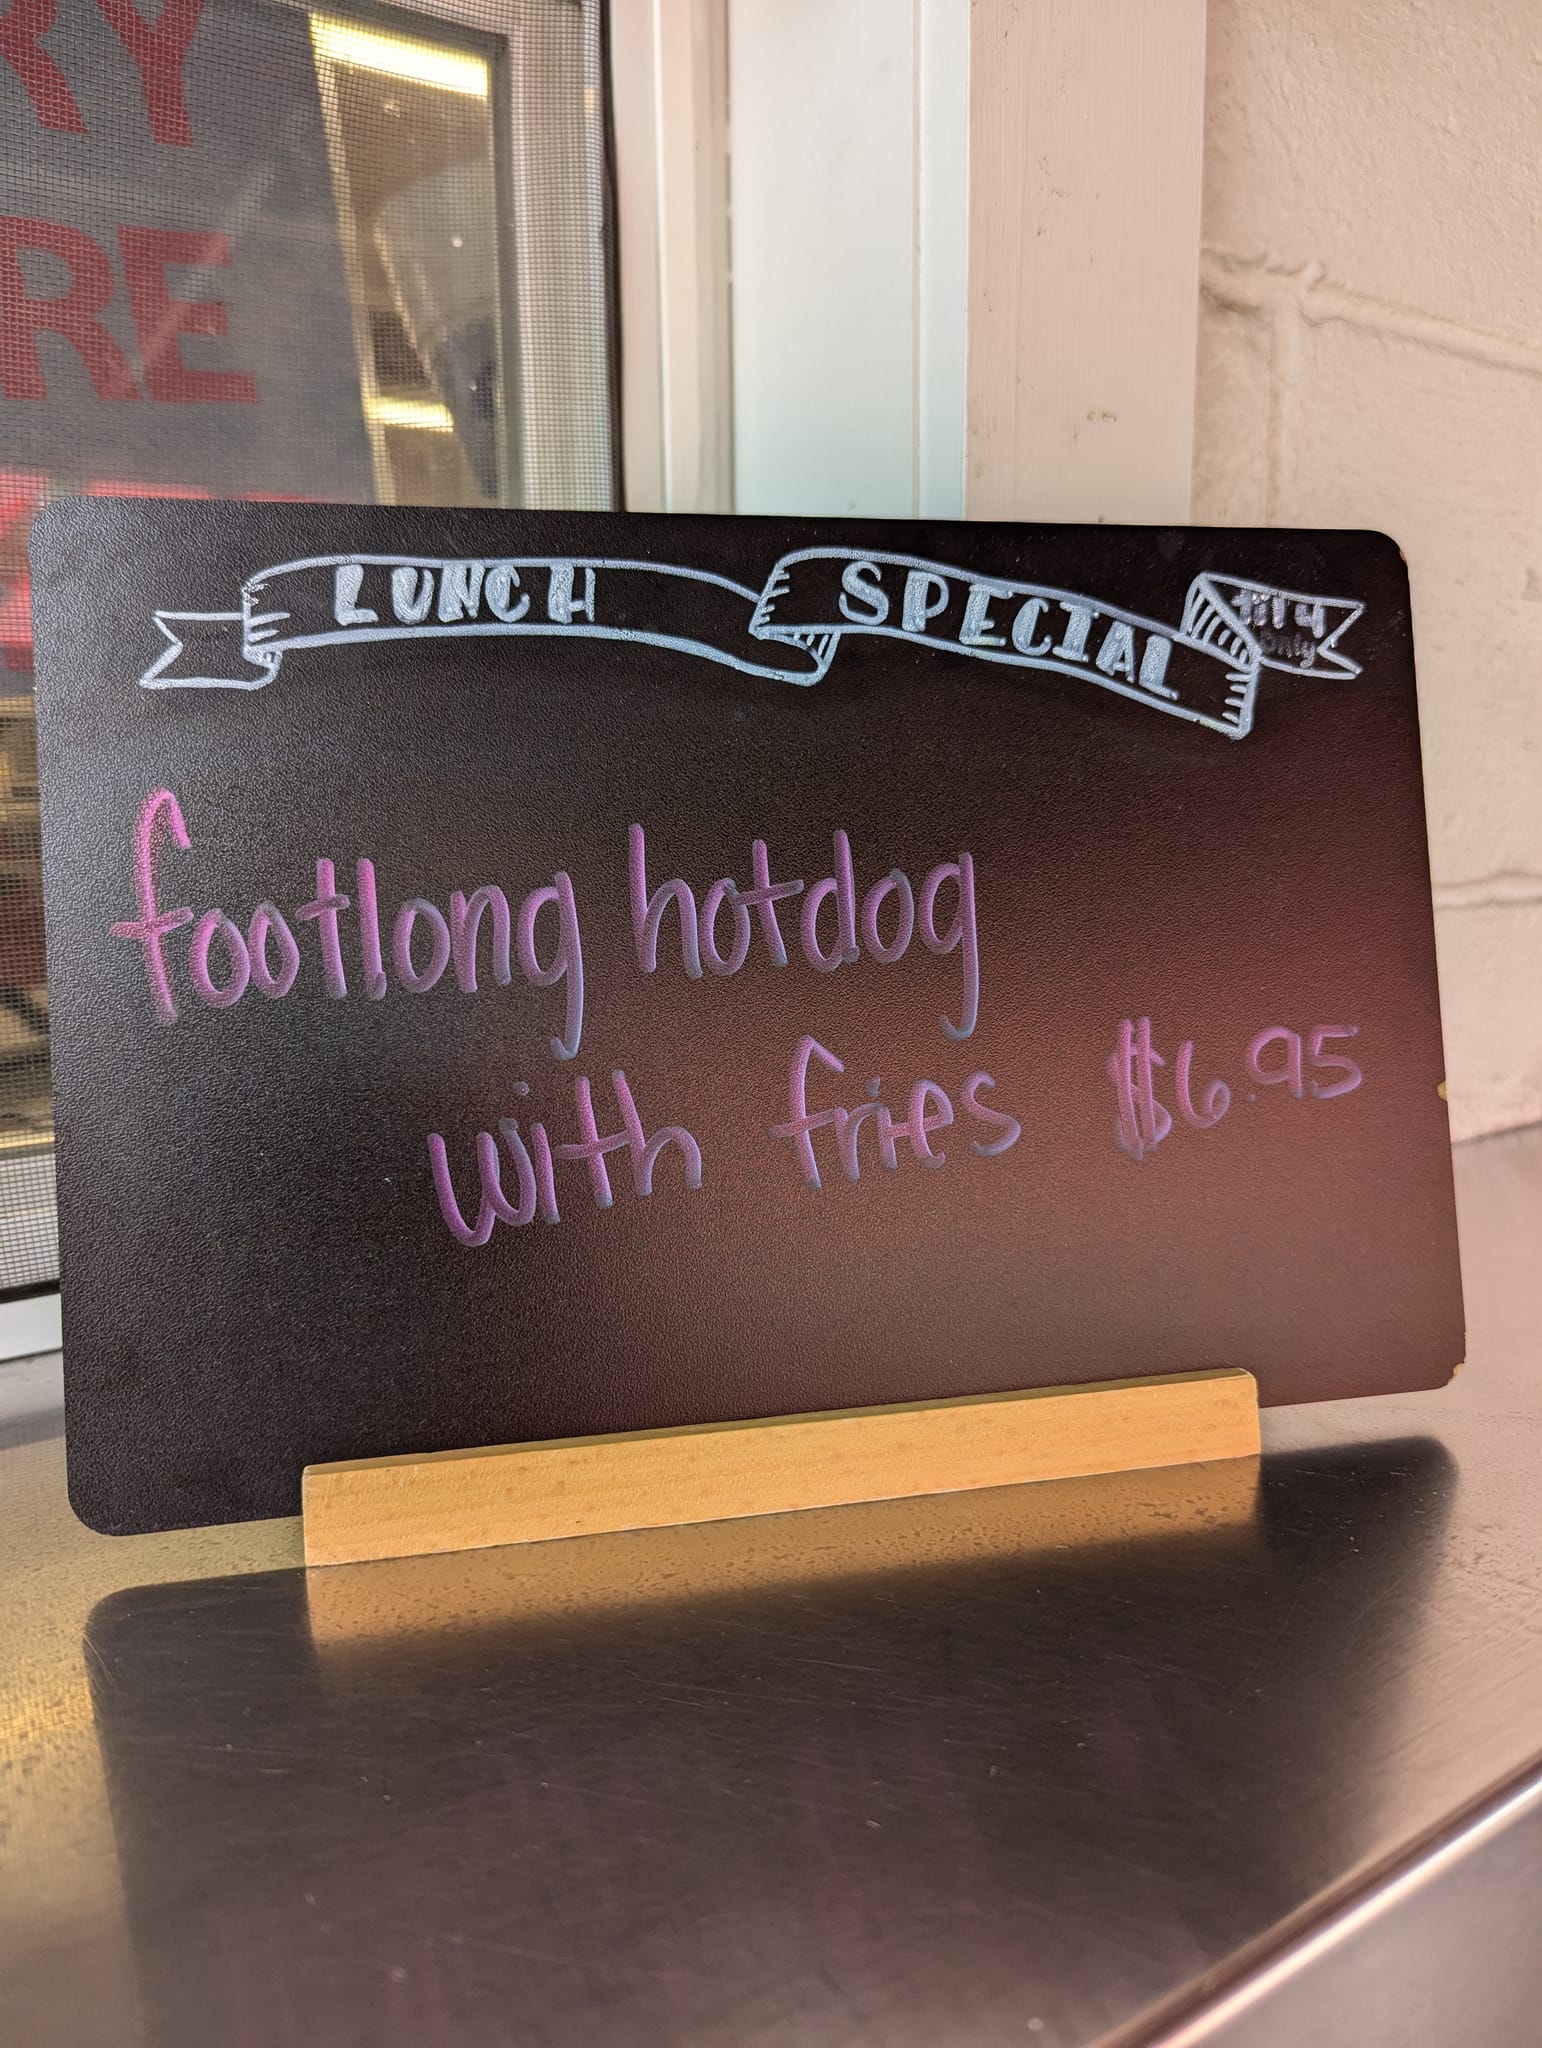 RY
RE
LUNCH SPECIAL
til 4
Only
footlong hotdog
with fries $6.95